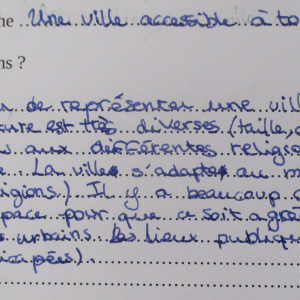 ne ..Une ville accessible à to
ns ?
de représenter une vill
ture est très diverses (taille,
aux différentes religio
La ville s'adapte au m
ligions.) Il y a beaucoup
pace pour que ce soit agré
s urbains les lieux publiq
icapées)